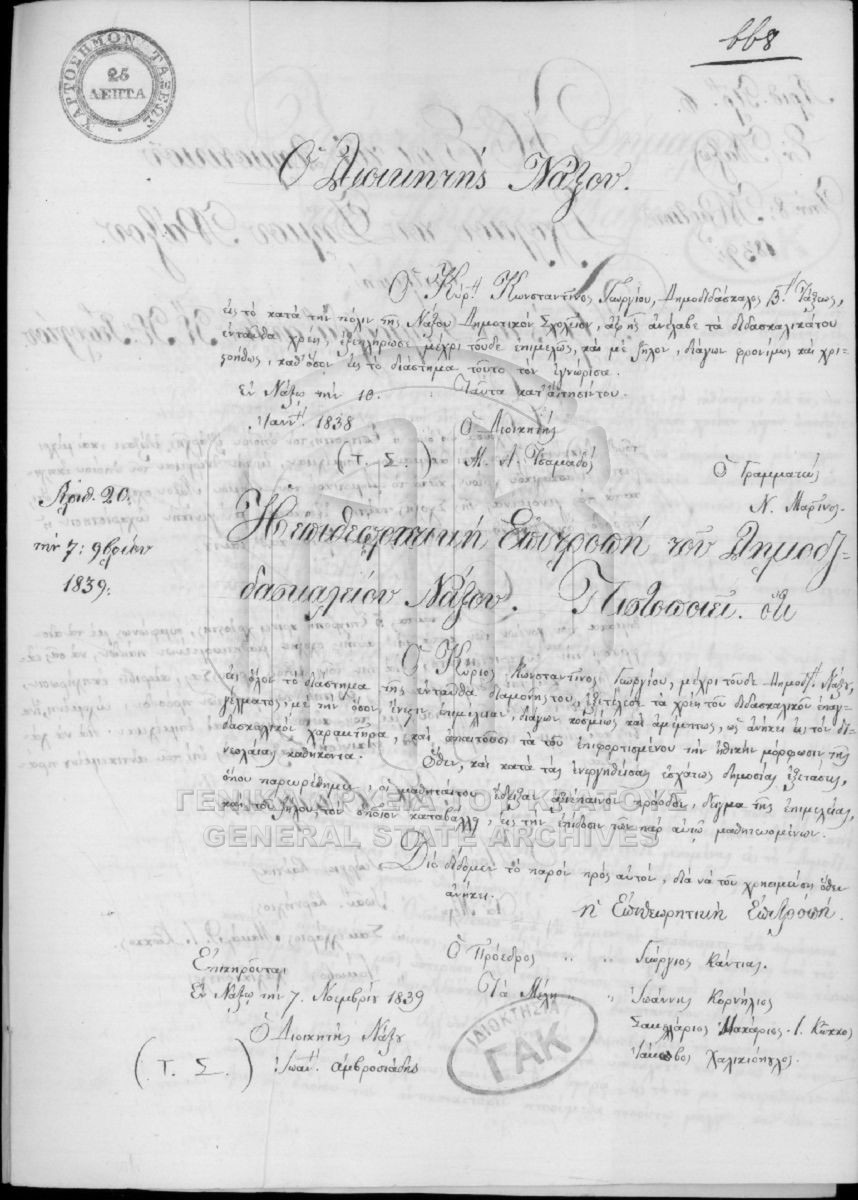 ΧΑΡΤΟΣΗΜΟΝ ΤΑΞΕΩΣ
25
ΛΕΠΤΑ
668
Ὁ Διοικητής Νάξου.
Ὁ Κύρ. Κωνσταντῖνος Γεωργίου, Δημοδιδάσκαλος Β. Τάξεως,
εἰς τὸ κατὰ τὴν πόλιν τῆς Νάξου Δημοτικὸν Σχολεῖον, ἀφ' ἧς ἀνέλαβε τὰ διδασκαλικά του
ἐνταῦθα χρέη, ἐξεπλήρωσε μέχρι τοῦδε ἐπιμελῶς, καὶ μὲ ζῆλον, διάγων φρονίμως καὶ χρη-
στοήθως, καθ' ὅσον εἰς τὸ διάστημα τοῦτο τὸν ἐγνώρισα.
Ἐν Νάξῳ τὴν 10. Ταῦτα κατ' αἴτησίν του.
Ἰανν. 1838 Ὁ Διοικητής
(Τ. Σ.) Α. Τσαμαδός
Ὁ Γραμματεύς
Ν. Μαρῖνος.
Ἀριθ. 20.
τὴν 7: 9βρίου
1839.
Ἡ ἐπιθεωρητική Ἐπιτροπή τοῦ Δημοδι-
δασκαλείου Νάξου. Πιστοποιεῖ. ὅτι
Ὁ Κύριος Κωνσταντῖνος Γεωργίου, μέχρι τοῦδε Δημοδ. Νάξου,
εἰς ὅλον τὸ διάστημα τῆς ἐνταῦθα διαμονῆς του, ἐξετέλεσε τὰ χρέη τοῦ διδασκαλικοῦ ἐπαγ-
γέλματος, μὲ τὴν ὅσον ἔνεστι ἐπιμέλειαν, διάγων κοσμίως καὶ ἀμέμπτως, ὡς ἀνήκει εἰς τὸν δι-
δασκαλικὸν χαρακτῆρα, καὶ ἀπαιτοῦσι τὰ τοῦ ἐπιφορτισμένου τὴν ἠθικὴν μόρφωσιν τῆς
νεολαίας καθήκοντα. Ὅθεν, καὶ κατὰ τὰς ἐνεργηθείσας ἐσχάτως δημοσίας ἐξετάσεις,
ὅπου παρευρέθημεν, οἱ μαθηταί του ἔδειξαν ἀξιέπαινον πρόοδον, δεῖγμα τῆς ἐπιμελείας,
καὶ τοῦ ζήλου, τὸν ὁποῖον καταβάλλει, εἰς τὴν ἐπίδοσιν τῶν παρ' αὐτῷ μαθητευομένων.
ΓΕΝΙΚΑ ΑΡΧΕΙΑ ΤΟΥ ΚΡΑΤΟΥΣ
GENERAL STATE ARCHIVES
Διὸ δίδομεν τὸ παρὸν πρὸς αὐτὸν, διὰ νὰ τοῦ χρησιμεύσῃ ὅθεν
ἀνήκει.
Ἡ Ἐπιθεωρητική Ἐπιτροπή.
Ὁ Πρόεδρος " " Γεώργιος Κάντιας.
Τὰ Μέλη " Ἰωάννης Κορνήλιος
Σακελλάριος Μακάριος. Ι. Κόκκος
Ἰάκωβος Χαλικιόπουλος.
Ἐπικυροῦται
Ἐν Νάξῳ τὴν 7. Νοεμβρίου 1839
Ὁ Διοικητής Νάξου
(Τ. Σ.) Ἰωάν. Ἀμβροσιάδης
ΙΔΙΟΚΤΗΣΙΑ
ΓΑΚ